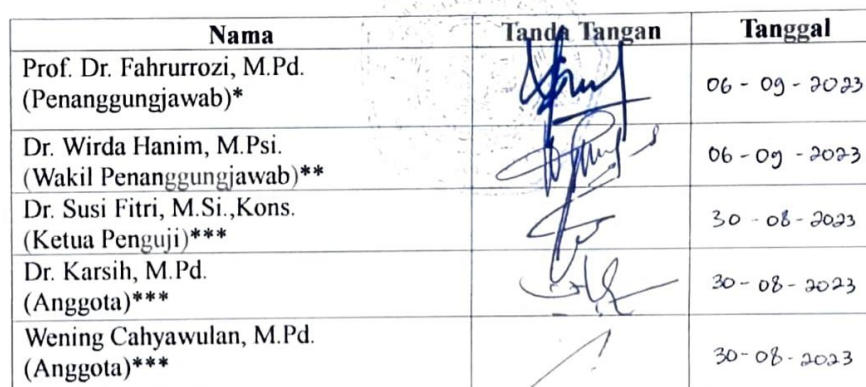 Nama Tanda Tangan Tanggal
Prof. Dr. Fahrurrozi, M.Pd.
(Penanggungjawab)* 06 - 09 - 2023
Dr. Wirda Hanim, M.Psi.
(Wakil Penanggungjawab)** 06 - 09 - 2023
Dr. Susi Fitri, M.Si.,Kons.
(Ketua Penguji)*** 30 - 08 - 2023
Dr. Karsih, M.Pd.
(Anggota)*** 30 - 08 - 2023
Wening Cahyawulan, M.Pd.
(Anggota)*** 30 - 08 - 2023